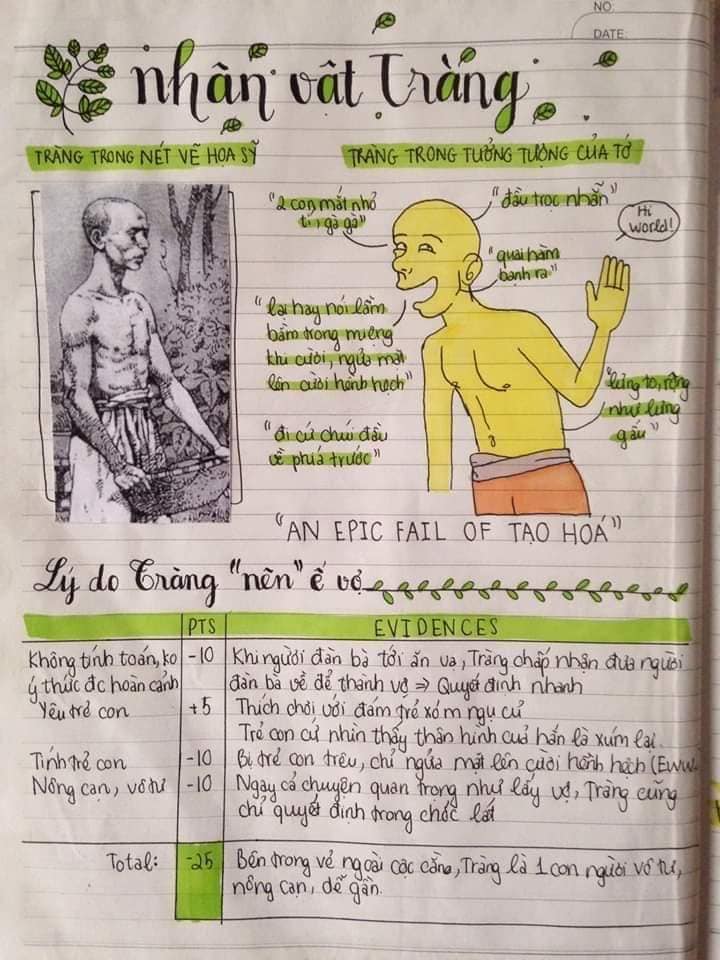 NO:
DATE:
nhân vật Tràng
TRÀNG TRONG NÉT VẼ HỌA SỸ
TRÀNG TRONG TƯỞNG TƯỢNG CỦA TỚ
"2 con mắt nhỏ
tí, gà gà"
"đầu trọc nhẵn"
Hi
World!
"quai hàm
bạnh ra"
"lại hay nói lảm
bảm trong miệng
khi cười, ngửa mặt
lên cười hềnh hệch"
"lưng to, rộng
như lưng
gấu"
"đi cứ chúi đầu
về phía trước"
"AN EPIC FAIL OF TẠO HOÁ"
Lý do Tràng "nên" ế vợ
PTS EVIDENCES
Không tính toán, ko -10 Khi người đàn bà tới ăn vạ, Tràng chấp nhận đưa người
ý thức đc hoàn cảnh đàn bà về để thành vợ => Quyết định nhanh
Yêu trẻ con +5 Thích chơi với đám trẻ xóm ngụ cư
Trẻ con cứ nhìn thấy thân hình cuả hắn là xúm lại.
Tính trẻ con -10 Bị trẻ con trêu, chỉ ngửa mặt lên cười hềnh hệch (Eww
Nông cạn, vô tư -10 Ngay cả chuyện quan trọng như lấy vợ, Tràng cũng
chỉ quyết định trong chốc lát
Total: -25 Bên trong vẻ ngoài cộc cằn, Tràng là 1 con người vô tư,
nông cạn, dễ gần.